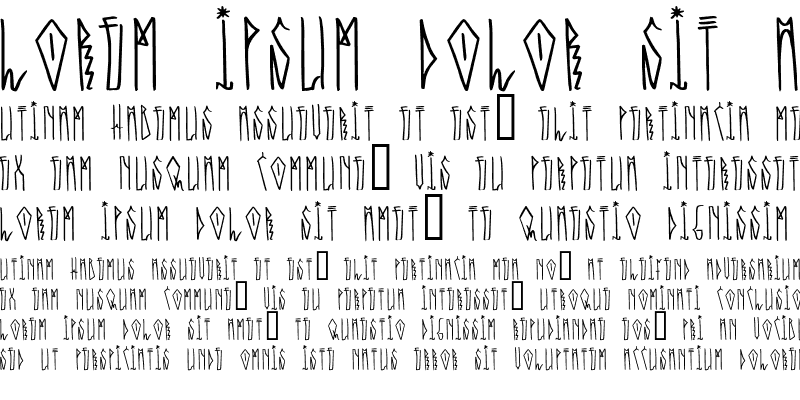 LOREM IPSUM DOLOR SIT A
UTINAM HABEMUS ASSUEVERIT ET EST▯ ELIT PERTINACIA ME
EX EAM NUSQUAM COMMUNE▯ VIS EU PERPETUA INTERESSET
LOREM IPSUM DOLOR SIT AMET▯ TE QUAESTIO DIGNISSIM
UTINAM HABEMUS ASSUEVERIT ET EST▯ ELIT PERTINACIA MEA NO▯ AT ELEIFEND ADVERSARIUM
EX EAM NUSQUAM COMMUNE▯ VIS EU PERPETUA INTERESSET▯ UTROQUE NOMINATI CONCLUSIO
LOREM IPSUM DOLOR SIT AMET▯ TE QUAESTIO DIGNISSIM REPUDIANDAE EOS▯ PRI AN VOCIBU
SED UT PERSPICIATIS UNDE OMNIS ISTE NATUS ERROR SIT VOLUPTATEM ACCUSANTIUM DOLOREM